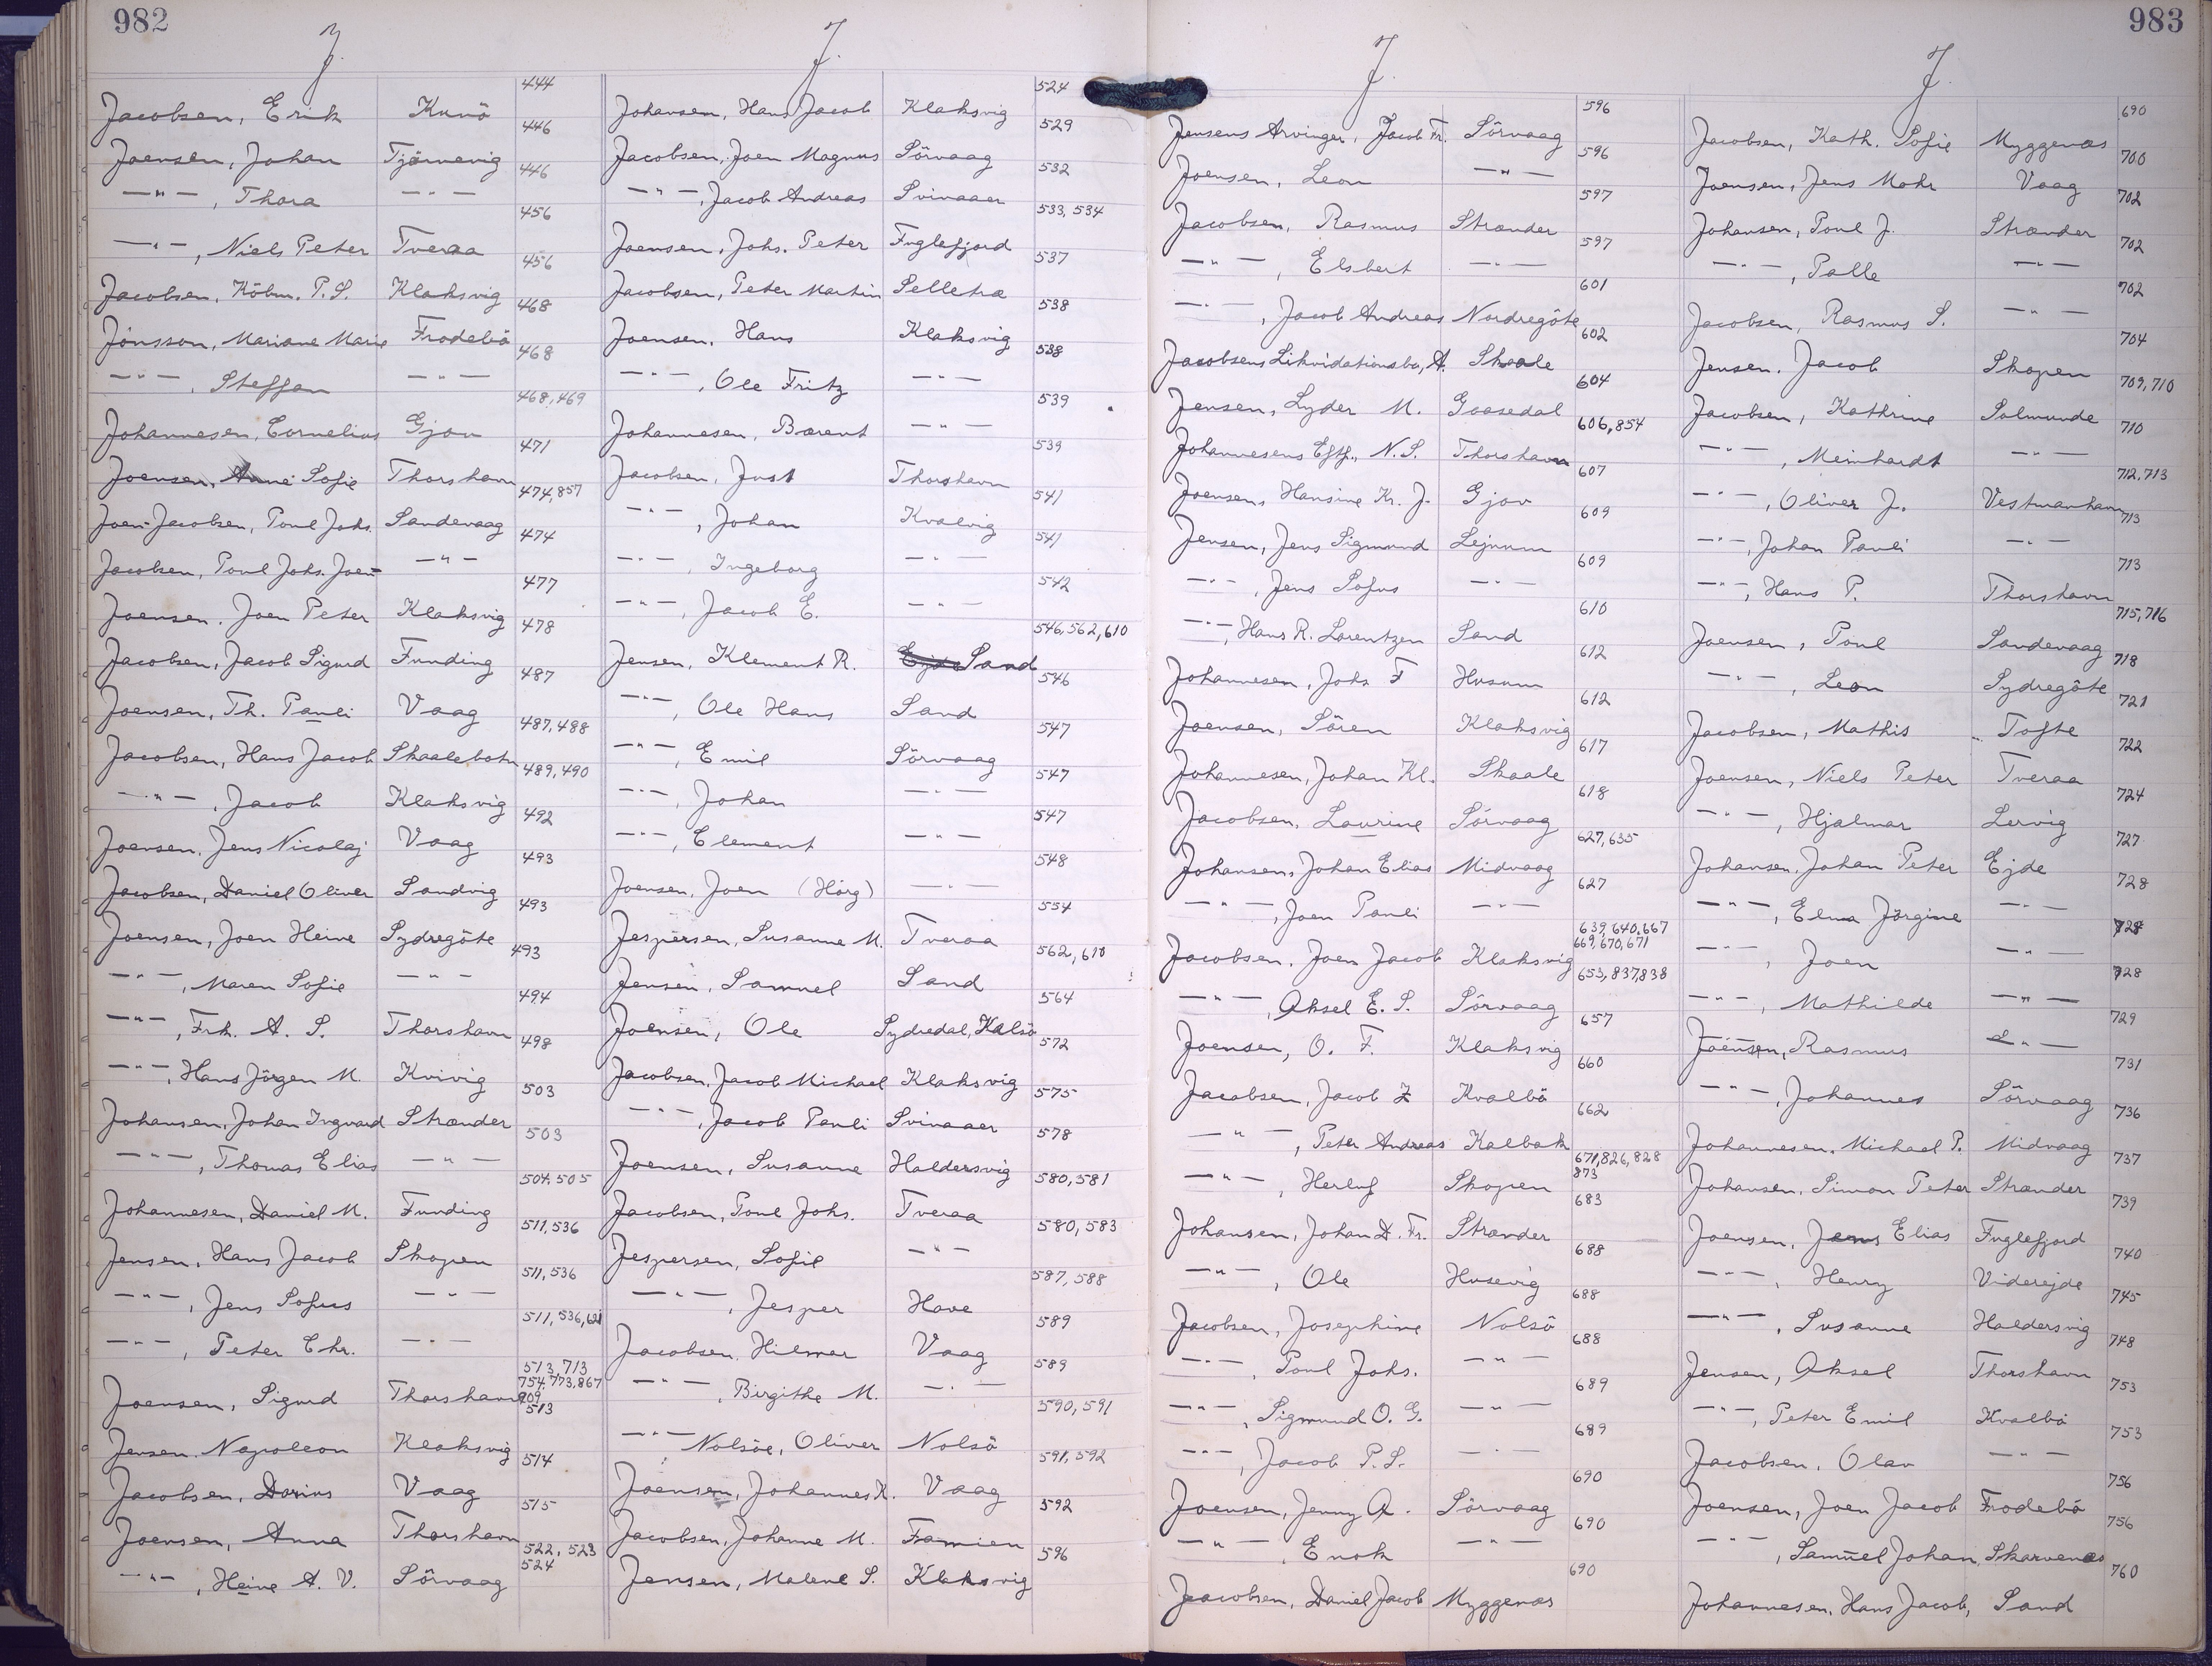 982
J. J.
444
Jacobsen, Erik Kunö
446
Joensen, Johan Tjörnevig
446
—"—, Thora —"—
456
—"—, Niels Peter Tveraa
456
Jacobsen, Köbm. P.S. Klaksvig
468
Jönsson, Mariane Marie Frodebö
468
—"—, Steffan —"—
468,469
Johannesen, Cornelius Gjov
471
Joensen, Anne Sofie Thorshavn
474,857
Joen-Jacobsen, Poul Johs. Sandevaag
474
Jacobsen, Poul Johs. Joen- —"—
477
Joensen, Joen Peter Klaksvig
478
Jacobsen, Jacob Sigurd Funding
487
Joensen, Th. Pauli Vaag
487,488
Jacobsen, Hans Jacob Skaalebotn
489,490
—"—, Jacob Klaksvig
492
Joensen, Jens Nicolaj Vaag
493
Jacobsen, Daniel Oliver Sandvig
493
Joensen, Joen Heine Sydregöte
493
—"—, Maren Sofie —"—
494
—"—, Frk. A. S. Thorshavn
498
—"—, Hans Jörgen M. Kvivig
503
Johansen, Johan Ingvard Strænder
503
—"—, Thomas Elias —"—
504,505
Johannesen, Daniel M. Funding
511,536
Jensen, Hans Jacob Skopen
511,536
—"—, Jens Sofus —"—
511,536,621
—"—, Peter Chr. —"—
513,713
754,773,867
Joensen, Sigurd Thorshavn 909
513
Jensen, Napoleon Klaksvig
514
Jacobsen, Darius Vaag
515
Joensen, Anna Thorshavn
522,523
524
—"—, Heine A. V. Sörvaag
524
Johansen, Hans Jacob Klaksvig
529
Jacobsen, Joen Magnus Sörvaag
532
—"—, Jacob Andreas Svinaaer
533,534
Joensen, Johs. Peter Fuglefjord
537
Jacobsen, Peter Martin Selletræ
538
Joensen, Hans Klaksvig
538
—"—, Ole Fritz —"—
539
Johannesen, Bærent —"—
539
Jacobsen, Just Thorshavn
541
—"—, Johan Kvalvig
541
—"—, Ingeborg —"—
542
—"—, Jacob E. —"—
546,562,610
Jensen, Klement R. Sand
546
—"—, Ole Hans Sand
547
—"—, Emil Sörvaag
547
—"—, Johan —"—
547
—"—, Clement —"—
548
Joensen, Joen (Hörg) —"—
554
Jespersen, Susanne M. Tveraa
562,610
Jensen, Samuel Sand
564
Joensen, Ole Sydredal, Kalsö
572
Jacobsen, Jacob Michael Klaksvig
575
—"—, Jacob Pauli Svinaaer
578
Joensen, Susanne Haldersvig
580,581
Jacobsen, Poul Johs. Tveraa
580,583
Jespersen, Sofie —"—
587,588
—"—, Jesper Hove
589
Jacobsen, Hilmar Vaag
589
—"—, Birgithe M. —"—
590,591
—"— Nolsöe, Oliver Nolsö
591,592
Joensen, Johannes K. Vaag
592
Jacobsen, Johanne M. Famien
596
Jensen, Malene S. Klaksvig
983
J. J.
596
Jensens Arvinger, Jacob Fr. Sörvaag
596
Joensen, Leon —"—
597
Jacobsen, Rasmus Strænder
597
—"—, Elsbert —"—
601
—"—, Jacob Andreas Nordregöte
602
Jacobsens Likvidationsbo, A. Skaale
604
Jensen, Lyder M. Gaasedal
606,854
Johannesens Eftf., N.S. Thorshavn
607
Joensen, Hansine Kr. J. Gjov
609
Jensen, Jens Sigmund Lejnum
609
—"—, Jens Sofus —"—
610
—"—, Hans R. Lorentzen Sand
612
Johannesen, Johs F Husum
612
Joensen, Sören Klaksvig
617
Johannesen, Johan Kl. Skaale
618
Jacobsen, Laurine Sörvaag
627,635
Johansen, Johan Elias Midvaag
627
—"—, Joen Pauli —"—
639,640,667
669,670,671
Jacobsen, Joen Jacob Klaksvig
653,837,838
—"—, Aksel E. S. Sörvaag
657
Joensen, O. F. Klaksvig
660
Jacobsen, Jacob Z Kvalbö
662
—"—, Peter Andreas Kalbak
671,826,828
873
—"—, Herluf Skopen
683
Johansen, Johan D. Fr. Strænder
688
—"—, Ole Husevig
688
Jacobsen, Josephine Nolsö
688
—"—, Poul Johs. —"—
689
—"—, Sigmund O. G. —"—
689
—"—, Jacob P.S. —"—
690
Joensen, Jenny A. Sörvaag
690
—"—, Enok —"—
690
Jacobsen, Daniel Jacob Myggenæs
690
Jacobsen, Kath. Sofie Myggenæs
700
Joensen, Jens Mohr Vaag
702
Johansen, Poul J. Strænder
702
—"—, Palle —"—
702
Jacobsen, Rasmus S. —"—
704
Jensen, Jacob Skopen
709,710
Jacobsen, Kathrine Solmunde
710
—"—, Meinhardt —"—
712,713
—"—, Oliver J. Vestmanhavn
713
—"—, Johan Pauli —"—
713
—"—, Hans P. Thorshavn
715,716
Joensen, Poul Sandevaag
718
—"—, Leon Sydregöte
721
Jacobsen, Mathis Tofte
722
Joensen, Niels Peter Tveraa
724
—"—, Hjalmar Lervig
727
Johansen, Johan Peter Ejde
728
—"—, Elma Jörgine —"—
728
—"—, Joen —"—
728
—"—, Mathilde —"—
729
Joensen, Rasmus —"—
731
—"—, Johannes Sörvaag
736
Johannesen, Michael P. Midvaag
737
Johansen, Simon Peter Strænder
739
Joensen, Jens Elias Fuglefjord
740
—"—, Henry Viderejde
745
—"—, Susanne Haldersvig
748
Jensen, Aksel Thorshavn
753
—"—, Peter Emil Kvalbö
753
Jacobsen, Olav —"—
756
Joensen, Joen Jacob Frodebö
756
—"—, Samuel Johan, Skarvenæs
760
Johannesen, Hans Jacob, Sand